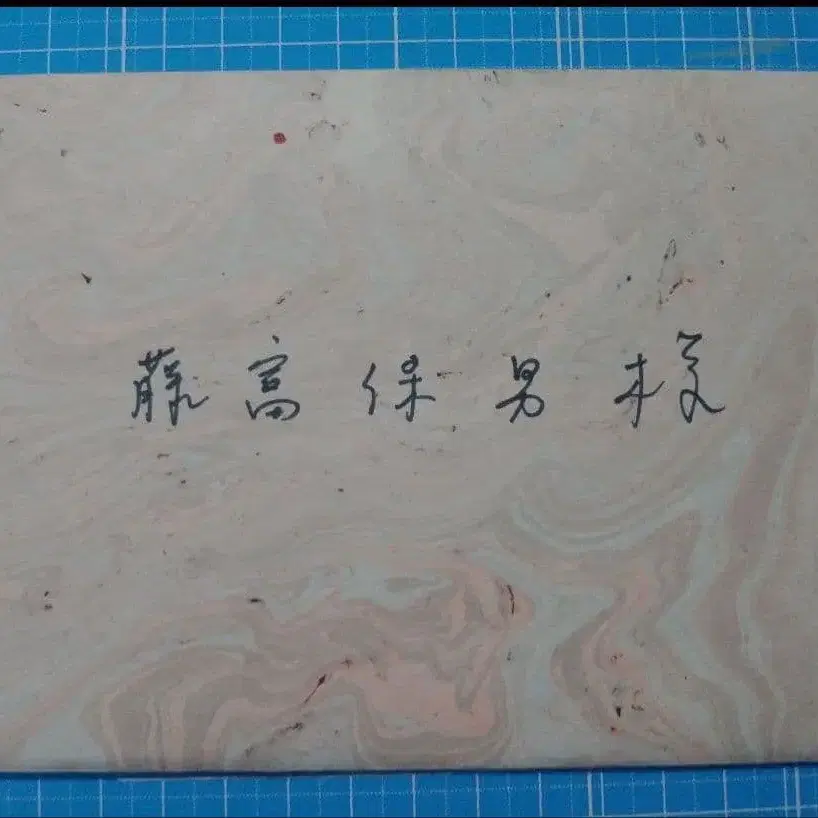 藤富保男様